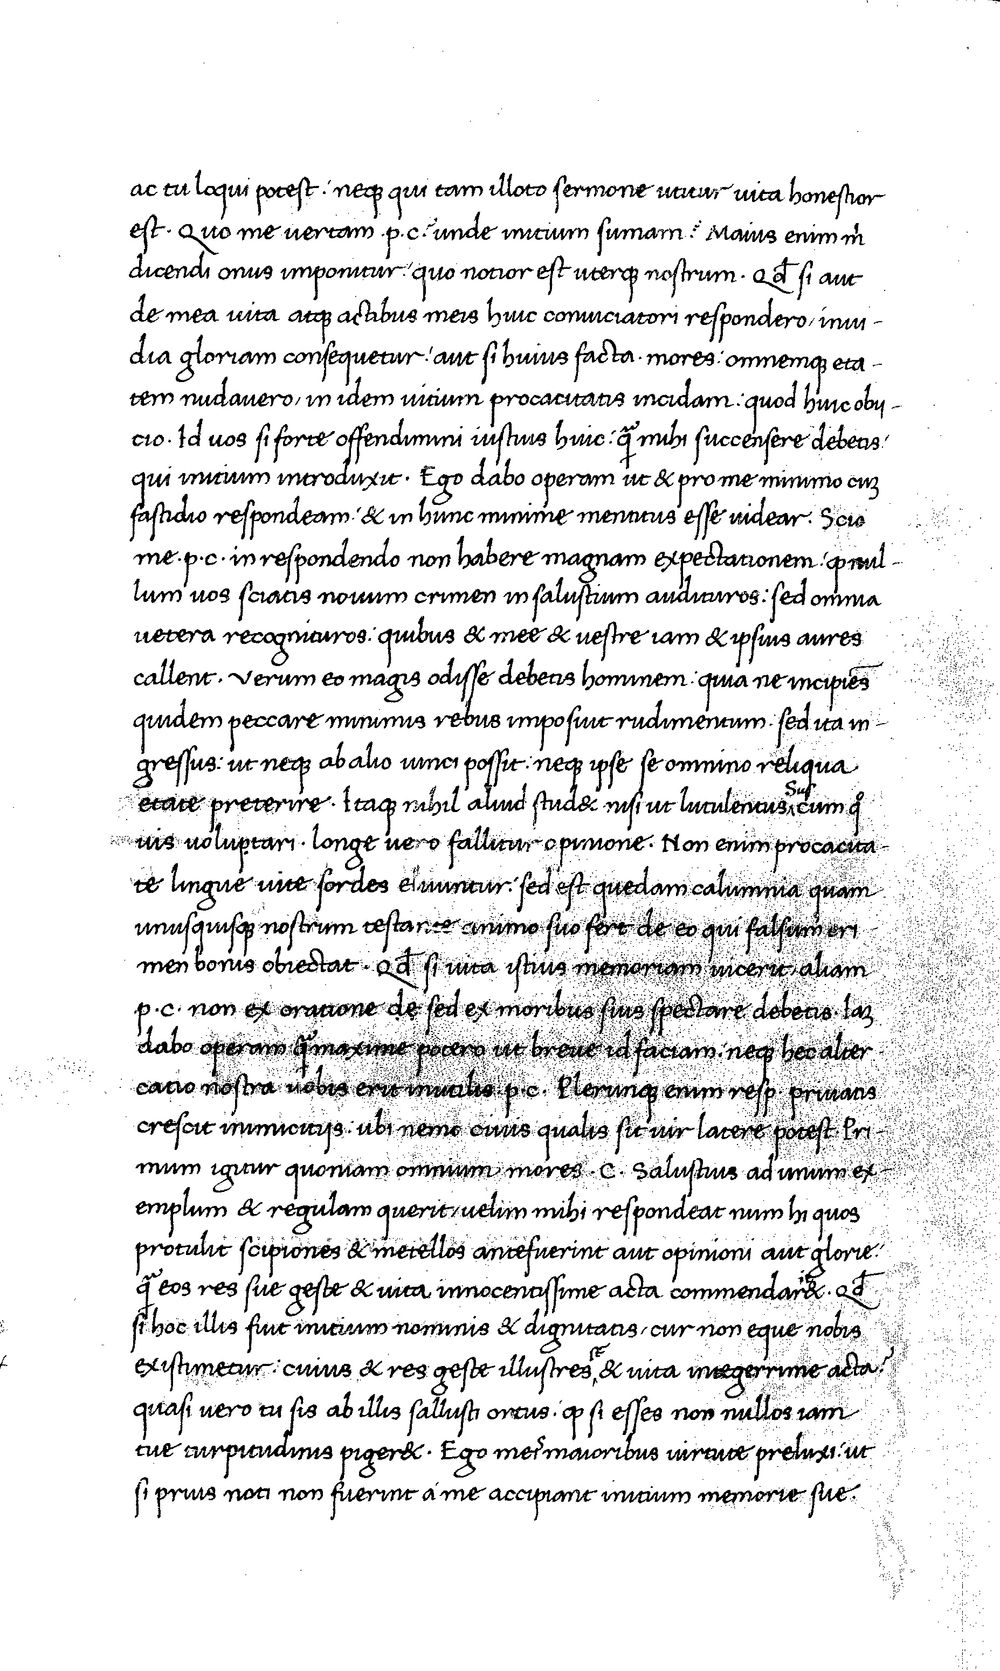 ac tu loqui potest: neqꝫ qui tam illoto sermone utitur uita honestior
est. Quo me uertam .p.c. unde initium sumam: Maius enim m̄
dicendi onus imponitur: quo notior est uterqꝫ nostrum. Qđ si aut
de mea uita atqꝫ actibus meis huic conuiciatori respondero, inui-
dia gloriam consequetur: aut si huius facta. mores: omnemqꝫ eta-
tem nudauero, in idem uitium procacitatis incidam: quod huic obij-
cio. Id uos si forte offendimini iustius huic: q̄ mihi succensere debetis:
qui initium introduxit. Ego dabo operam ut & pro me minimo cuꝫ
fastidio respondeam: & in hunc minime mentitus esse uidear. Scio
me .p.c. in respondendo non habere magnam expectationem: ꝙ nul-
lum uos sciatis nouum crimen in salustium audituros: sed omnia
uetera recognituros: quibus & mee & uestre iam & ipsius aures
callent. Verum eo magis odisse debetis hominem: quia ne incipiēs
quidem peccare minimis rebus imposuit rudimentum. sed ita in-
gressus: ut neqꝫ ab alio uinci possit: neqꝫ ipse se omnino reliqua
etate preterire. Itaqꝫ nihil aliud stud& nisi ut lutulentus Sus cum qͦ
uis uoluptari. longe uero fallitur opinione. Non enim procacita-
te lingue uite sordes eluuntur: sed est quedam calumnia quam
unusquisqꝫ nostrum testante animo suo fert de eo qui falsum cri-
men bonis obiectat. Qđ si uita istius memoriam uicerit, aliam
p.c. non ex oratione de sed ex moribus suis spectare debetis. Iaꝫ
dabo operam q̄ maxime potero ut breue id faciam: neqꝫ hec alter-
catio nostra uobis erit inutilis .p.c. Plerunqꝫ enim resp. priuatis
crescit inimicitijs: ubi nemo ciuis qualis sit uir latere potest. Pri-
mum igitur quoniam omnium mores .C. Salustius ad unum ex-
emplum & regulam querit, uelim mihi respondeat num hi quos
protulit scipiones & metellos antefuerint aut opinioni aut glorie:
q̄ eos res sue geste & uita innocentissime acta commendar&. Qđ
si hoc illis fuit initium nominis & dignitatis, cur non eque nobis
existimetur: cuius & res geste illustres st̄ & uita integerrime acta?
quasi uero tu sis ab illis sallusti ortus. ꝙ si esses non nullos iam
tue turpitudinis piger&. Ego meis maioribus uirtute preluxi: ut
si prius noti non fuerint a me accipiant initium memorie sue.